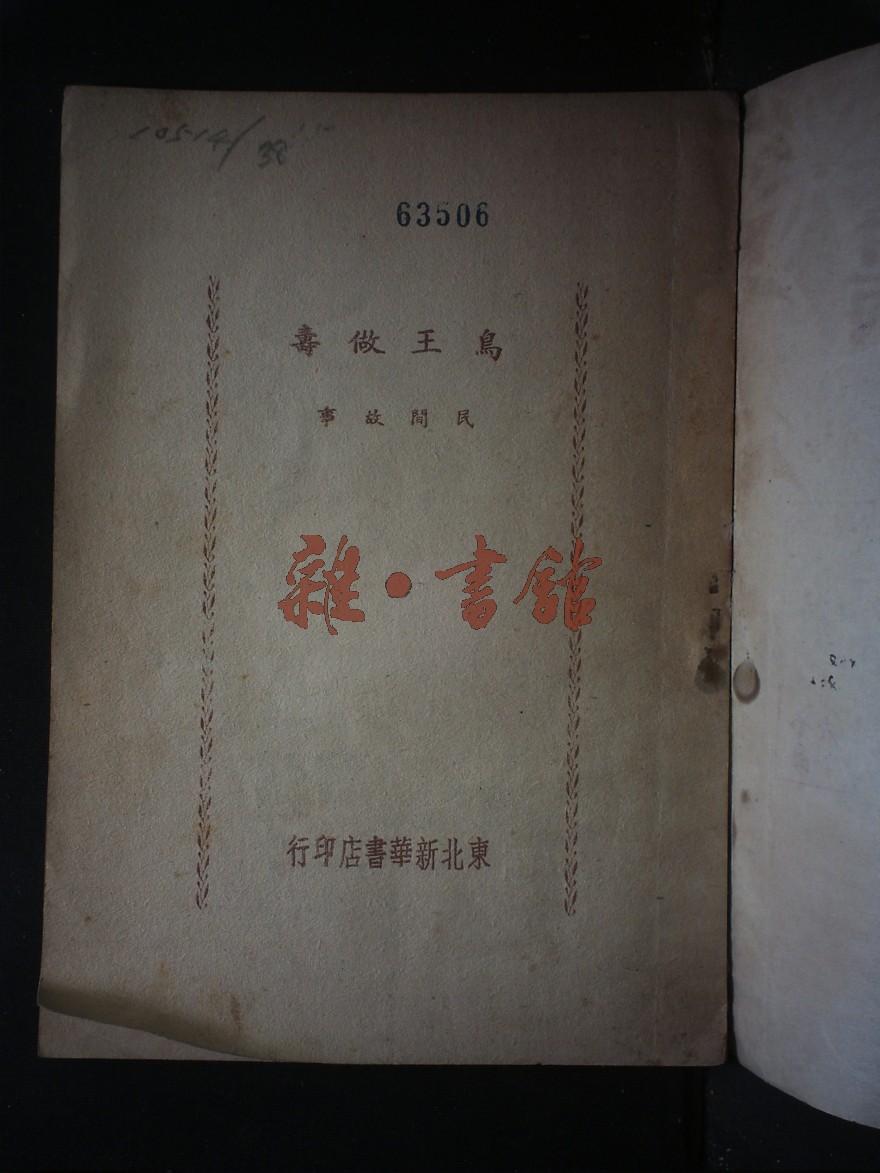 63506
鳥王做壽
民間故事
雜·書館
東北新華書店印行